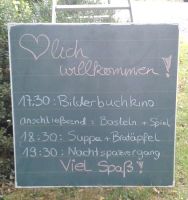 ♡lich
willkommen!
17:30: Bilderbuchkino
anschließend: Basteln + Spiel
18:30: Suppe + Bratäpfel
19:30: Nachtspaziergang
Viel Spaß!